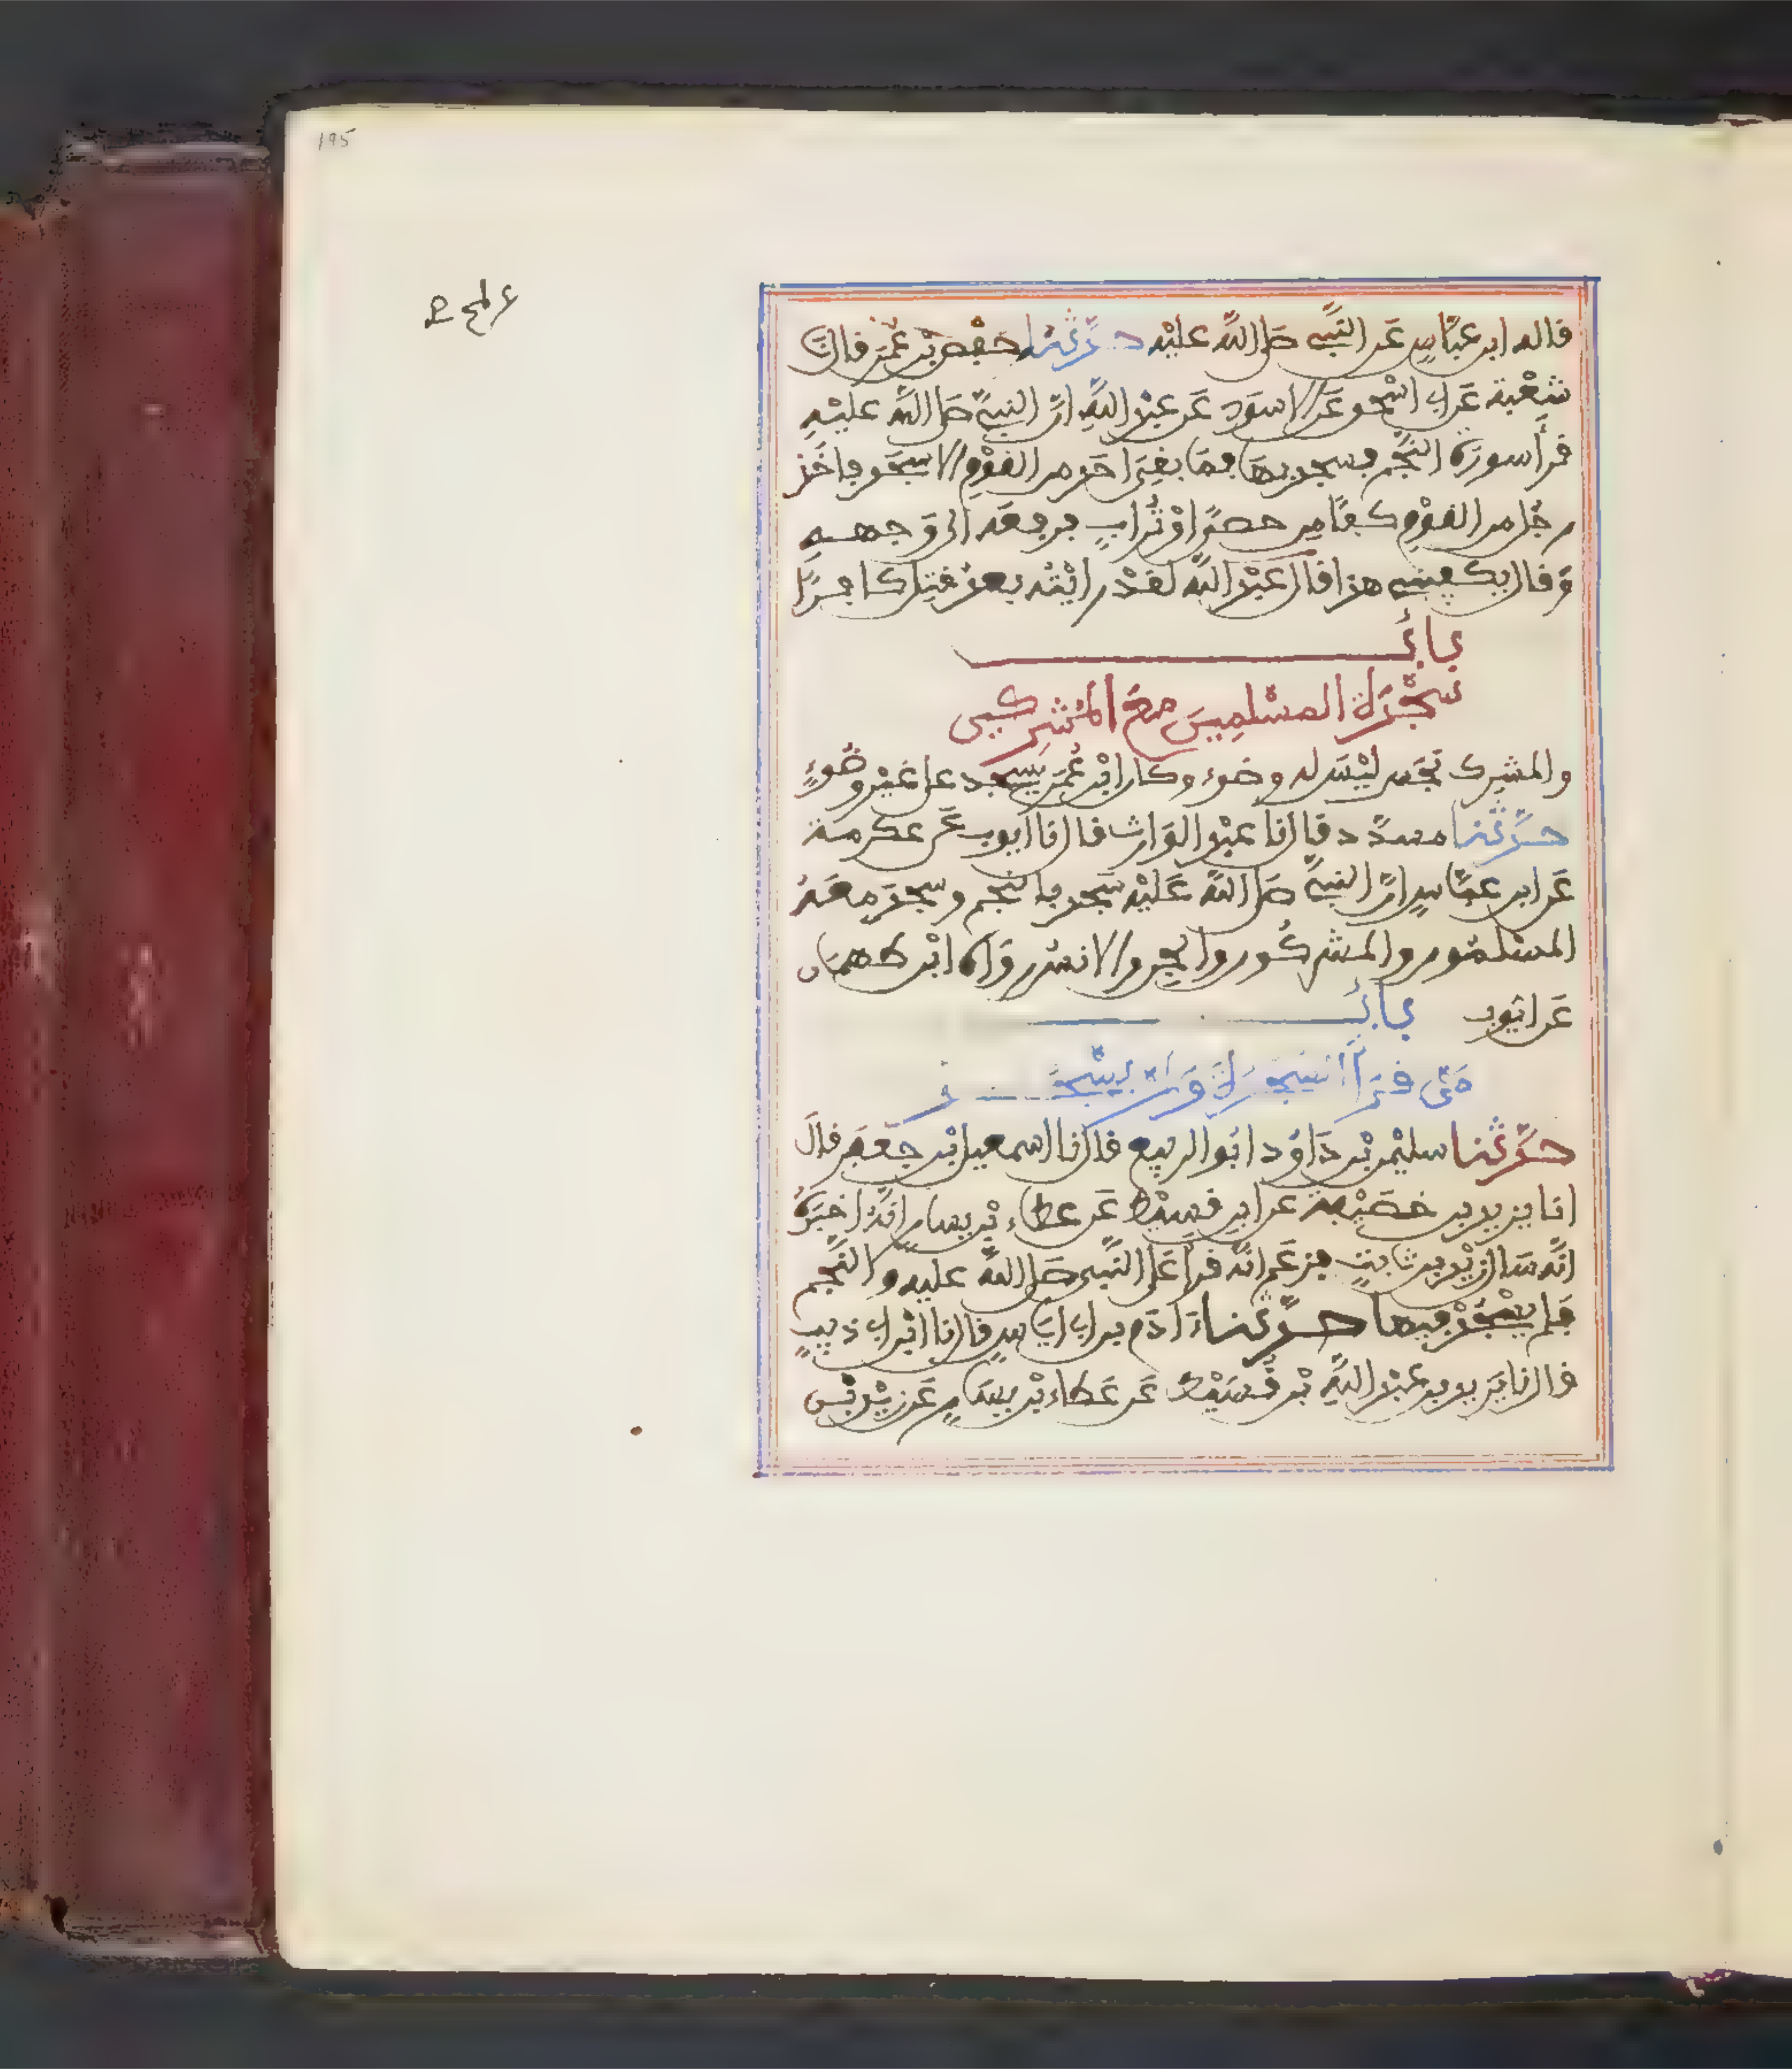 195
قاله ابن عبّاس عَن النّبيّ صَلى اللّه عليْه حدّثنا حفْص بْن عُمَر قال نا
شعْبة عَن ابي اسْحٰق عَن الاسوَد عَن عبْد اللّهِ انّ النبيّ صَلى اللّه عليْهِ
قرأ سورَة النّجْم فسجد بهَا فمَا بقِيَ احَد من القوْمِ الا سجَد فاخَذ
رجُل من القوْمِ كفّا مِن حصًى اوْ تُرابٍ فرفعَه الى وَجههِ
وَقال يكفيني هذا قال عَبْد اللّه لقدْ رايْتُه بعدُ قتِل كافرًا
بابُ
سجْدَة المسْلمِينَ معَ المُشْرِكين
والمشرِك نجَس ليْسَ له وضوء وكان ابْن عُمَر يسجد على غيْر وضُوءٍ
حدّثنا مسدّد قال نا عبْد الوَارث قال نا ايوب عَن عكرمة
عَن ابن عبّاسٍ انّ النبيّ صَلى اللّه عَليْه سَجد بالنّجم وسجَد معَهُ
المسْلمُون والمشركُون والجن والانسُ روَاه ابْن طهمَان
عَن ايّوب بابُ
مَن قرَأ السّجدَة وَلمْ يسْجُدْ
حدّثنا سليْمٰن بْن دَاوُد ابُو الربيع قال نا اسمعيل بْن جعفَر قالَ
انا يزيد بن خصَيْفة عن ابن قسيْط عَن عطاء بْن يسارٍ انّهُ اخبَرَهُ
انّه سَال زيْد بن ثابتٍ فزعَم انّه قرأ عَلى النّبي صَلى اللّه عليه والنّجْم
فلم يسْجُدْ فيها حدّثنا ءَادَم بن ابي ايَاسٍ قال نا ابْن ابي ذيبٍ
قال نا يَزيد بن عبْد اللّهِ بْن قُسَيْط عَن عَطاء بْن يسَارٍ عَن زيْد بْن